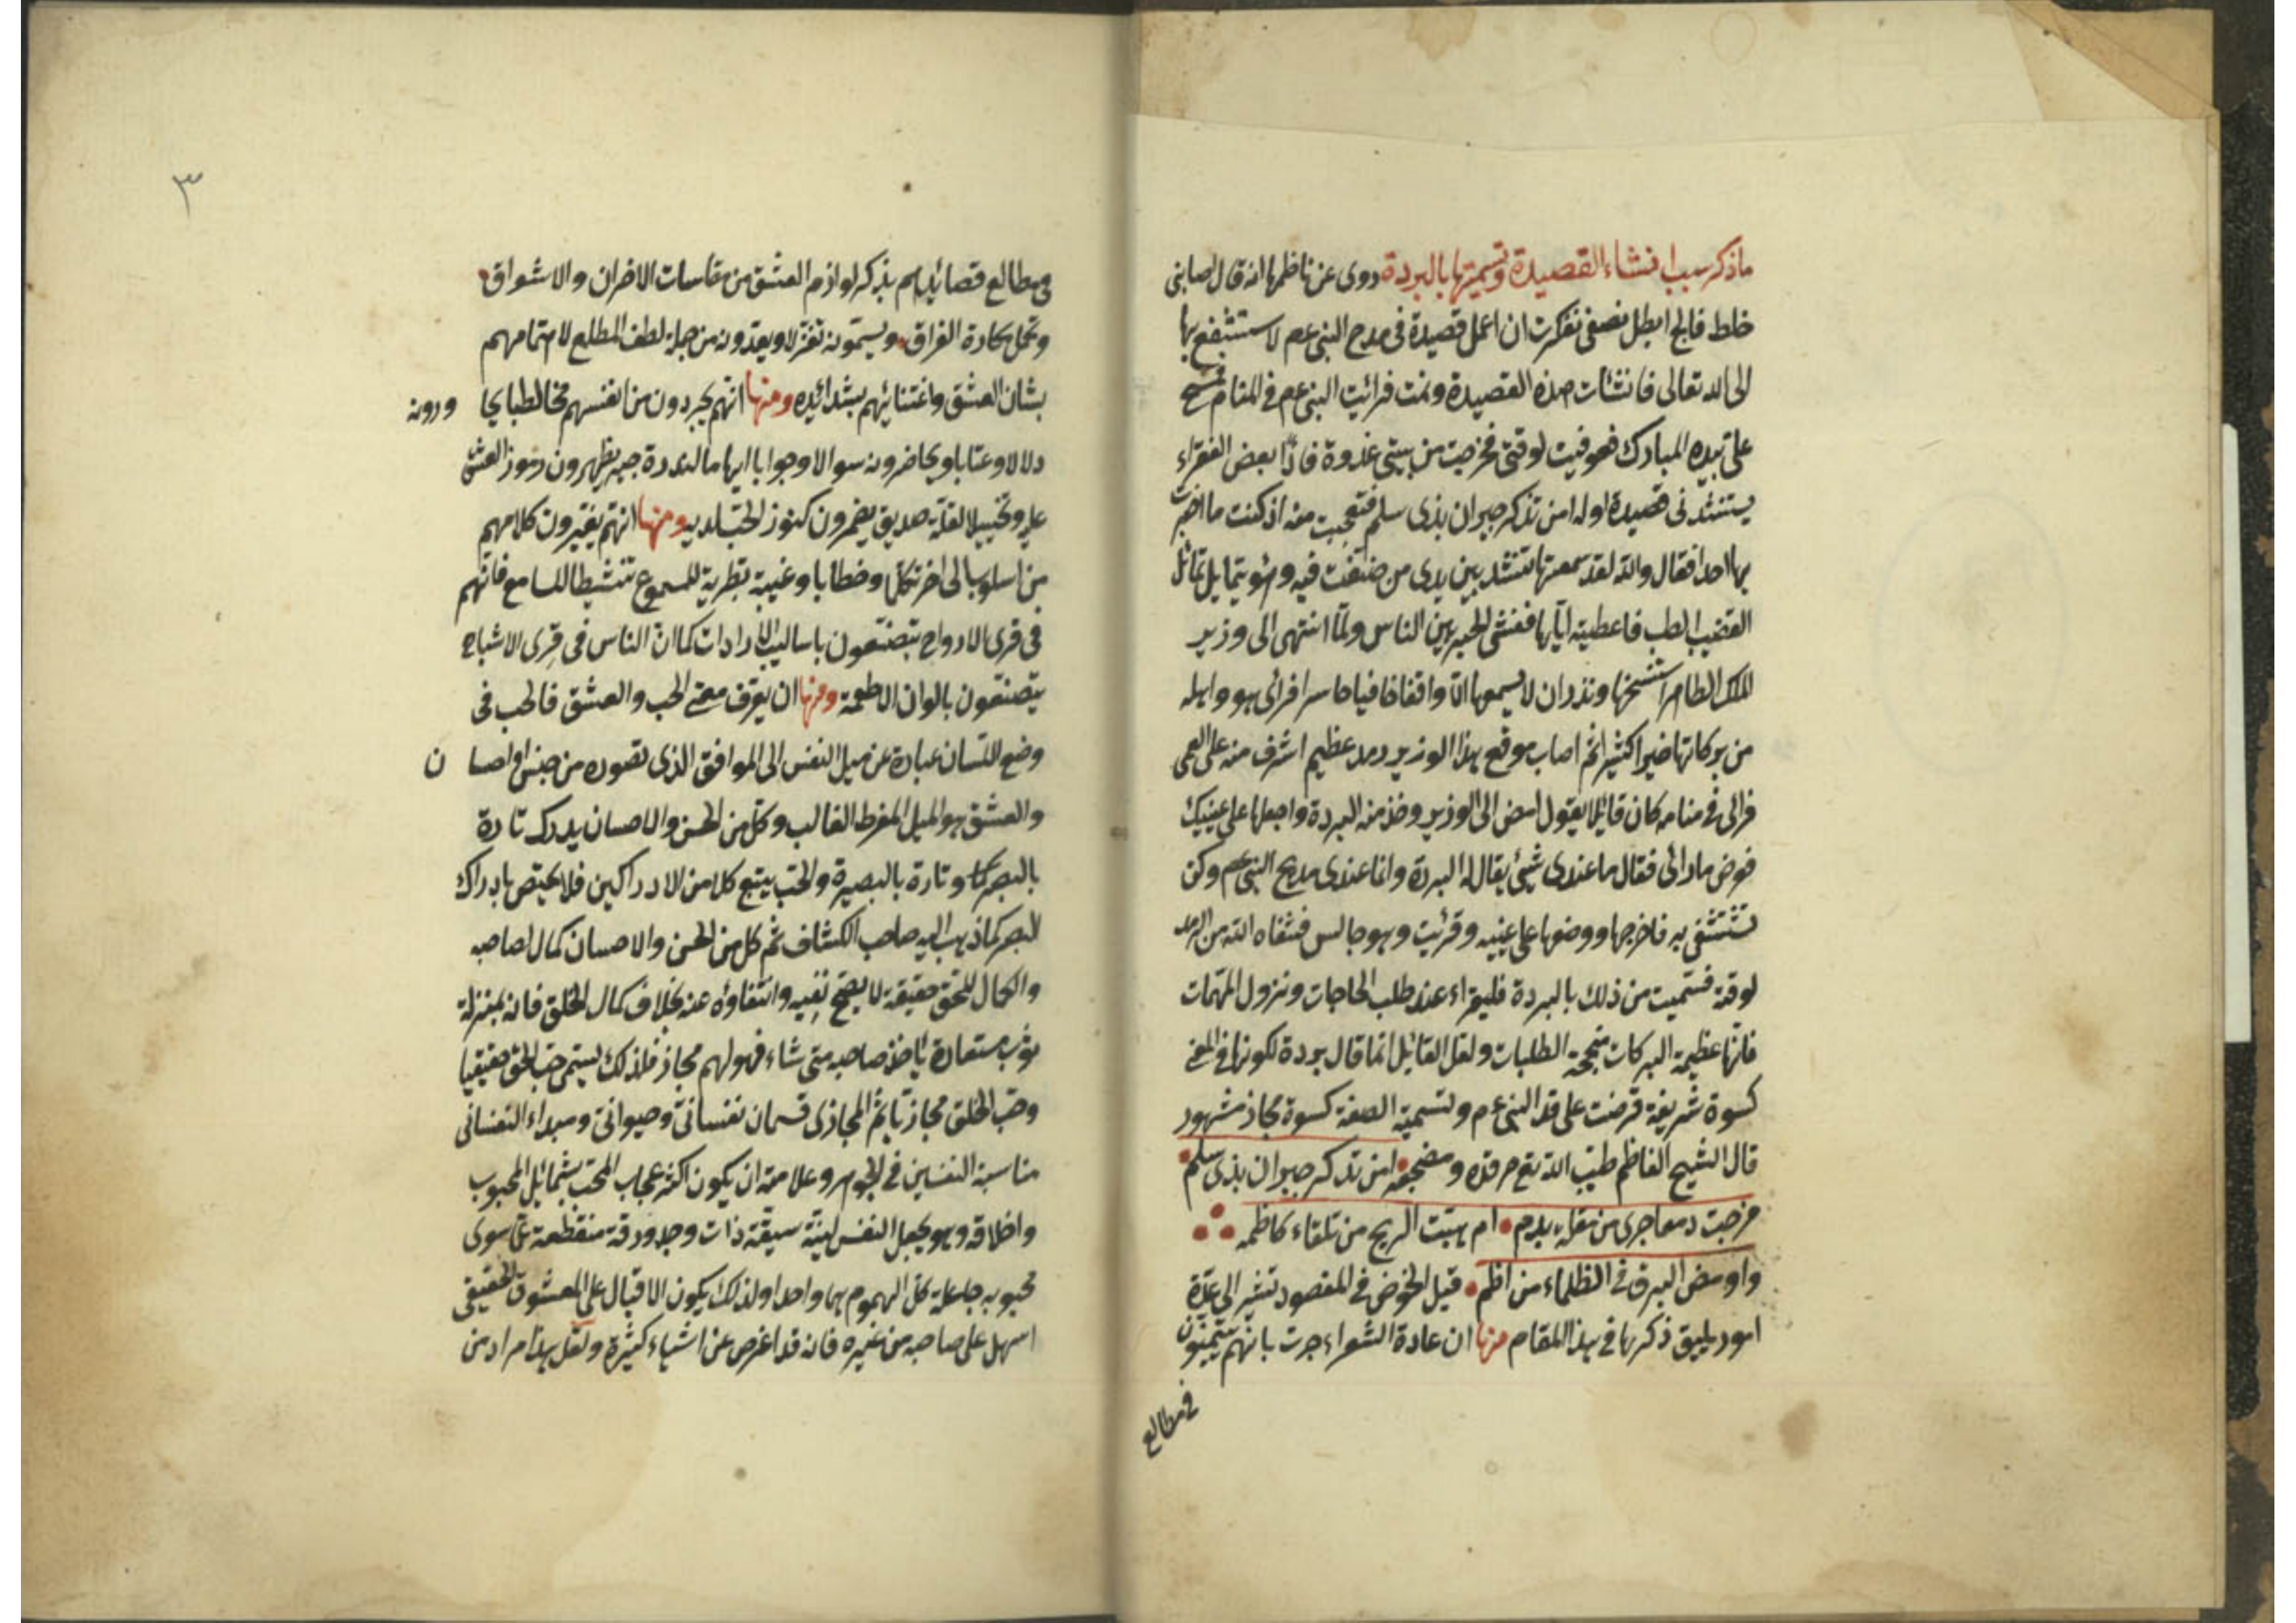 ما ذكر سبب انشاء القصيدة وتسميتها بالبردة روى عن ناظمها انه قال اصابنى
خلط فالج ابطل نصفى نفكرت ان اعمل قصيدة فى مدح النبى عم لاستشفع بها
الى الله تعالى فانشئات هذه القصيدة ونمت فرائيت النبى عم فى المنام فمسح
على بيده المبارك فعوفيت لوقتى فخرجت من بيتى غدوة فاذا بعض الفقراء
يستنشدنى قصيدة اولها من تذكر جيران بذى سلم فتعجبت منه اذ كنت ما اخبرت
بها احدا فقال والله لقد سمعتها تنشد بين يدى من صنفت فيه وهو يتمايل تمائل
القضيب الرطب فاعطيته اياها ففشى الخبر بين الناس ولما انتهى الى وزير
الملك الطاهر استنسخها ونذر ان لا يسمعها الا واقفا حافيا حاسرا فرائى هو واهله
من بركاتها خيرا كثيرا ثم اصاب موقع هذا الوزير رمد عظيم اشرف منه على العمى
فرائى فى منامه كان قائلا يقول امض الى الوزير وخذ منه البردة واجعلها على عينيك
فعرض ما رائى فقال ما عندى شيئ يقال له البردة وانما عندى مديح النبى عم ولكن
نستشفى به فاخرجها ووضعها على عينيه وقرئيت وهو جالس فشفاه الله من الرمد
لوقته فسميت من ذلك بالبردة فليقراء عند طلب الحاجات ونزول المهمات
فانها عظيمة البركات منجحة الطلبات ولعل القائل انما قال بردة لكونها فى المعنى
كسوة شريفة قرضت على قد النبى عم وتسمية الصفة كسوة مجاز مشهور
قال الشيخ الناظم طيب الله تع مرقده ومضجعه امن تذكر جيران بذى سلم
مزجت دمعا جرى من مقلة بدم ام هبت الريح من تلقاء كاظمه
واومض البرق فى الظلماء من اضم قبل الخوض فى المقصود نشير الى عدة
امور يليق ذكرها فى هذا المقام منها ان عادة الشعراء جرت بانهم يتيمنون
فى مطالع
٣
فى مطالع قصائدهم بذكر لوازم العشق من مقاسات الاحزان والاشواق
وتحمل مكاره الفراق ويسمونه تغزلا ويعدونه من جملة لطف المطلع لاهتمامهم
بشان العشق واعتنائهم بشدائده ومنها انهم يجردون من انفسهم مخاطبا يحا ورونه
دلالا وعتابا ويحاضرونه سوالا وجوابا ايهاما لندرة حبيب يظهرون رموز العشق
عليه وتخييلا لقلة صديق يضمرون كنوز الحب لديه ومنها انهم يغيرون كلامهم
من اسلوب الى اخر تكلما وخطابا وغيبة تطرية للمسموع تنشيطا للسامع فانهم
فى قرى الارواح يتصنعون باساليب الارادات كما ان الناس فى قرى الاشباح
يتصنعون بالوان الاطعمة ومنها ان يعرف معنى الحب والعشق فالحب فى
وضع اللسان عبارة عن ميل النفس الى الموافق الذى تصوره من حسن او احسا ن
والعشق هو الميل المفرط الغالب وكل من الحسن والاحسان يدرك تارة
بالبصر وتارة بالبصيرة والحب يتبع كلا من الادراكين فلا يختص بادراك
البصر كما ذهب اليه صاحب الكشاف ثم كل من الحسن والاحسان كمال لصاحبه
والكمال للحق حقيقة لا يصح نفيه وانتفاؤه عنه بخلاف كمال الخلق فانه بمنزلة
ثوب مستعارة ياخذ صاحبه متى شاء فهو لهم مجاز فلذلك يسمى حب الحق حقيقيا
وحب الخلق مجازيا ثم المجازى قسمان نفسانى وحيوانى ومبداء النفسانى
مناسبة النفسين فى الجوهر وعلامته ان يكون اكثر عجاب المحب بشمائل المحبوب
واخلاقه وهو يجعل النفس لينة شيقة ذات وجد ورقة منقطعة عما سوى
محبوبه جاعلة كل الهموم هما واحدا ولذلك يكون الاقبال على المعشوق الحقيقى
اسهل على صاحبه من غيره فانه قد اعرض عن اشياء كثيرة ولعل هذا مراد من